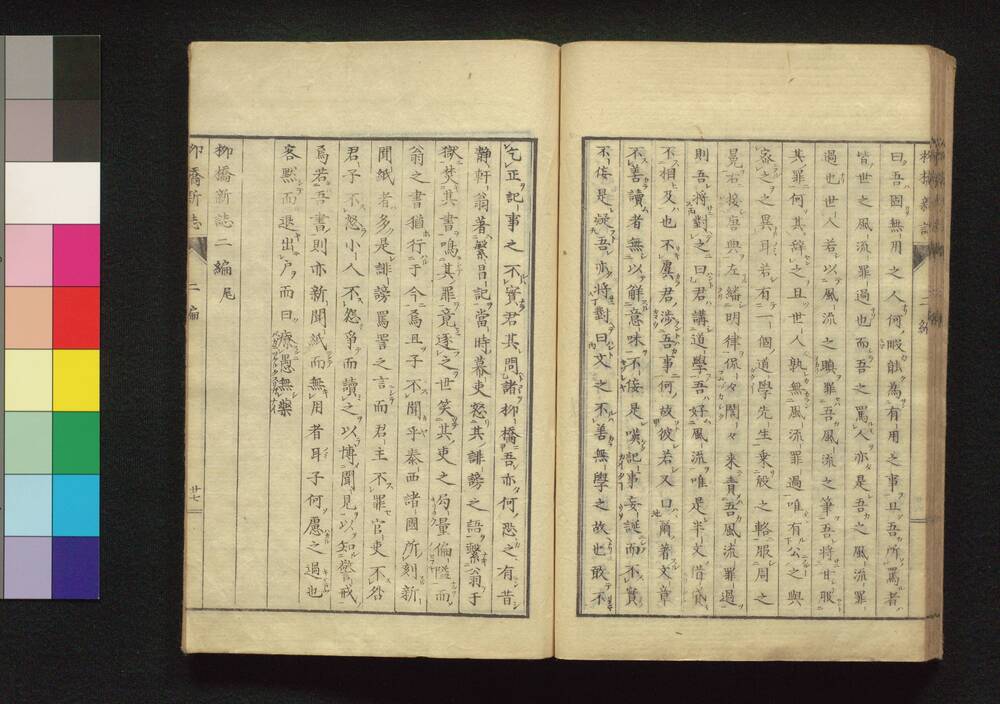 曰吾固無用之人何暇能為有用之事且吾所罵者
皆世之風流罪過也而吾之罵人亦是吾之風流罪
過也世人若以風流之職罪吾風流之筆吾將甘服
其罪何其辭之且世人孰無風流罪過唯有公之與
密之之異耳若有一個道學先生乘殷之輅服周之
冕右接唐與左繙明律保々閣々來責吾風流罪過
則吾將對之曰君講道學吾好風流唯是半文借貸
不相及也不虞君涉吾事何故彼若又曰爾著文章
不善讀者無以解意味不佞是嘆記事妄誕而不實
不佞是疑吾亦將對曰文之不善無學之故也敢不
乞正記事之不實君其問諸柳橋吾亦何恐之有昔
靜軒翁著繁昌記當時幕吏怒其誹謗之語繫翁于
獄焚其書鳴其罪竟逐之世笑其吏之局量偏隘而
翁之書猶行于今焉且子不聞乎泰西諸國所刻新
聞紙者多是誹謗罵詈之言而君主不罪官吏不咎
君子不怒小人不怨爭而讀之以博聞見以知警戒
焉若吾書則亦新聞紙而無用者耳子何慮之過也
客默而退出戶而曰療愚無藥
柳橋新誌二編尾
柳橋新誌 二編 廿七